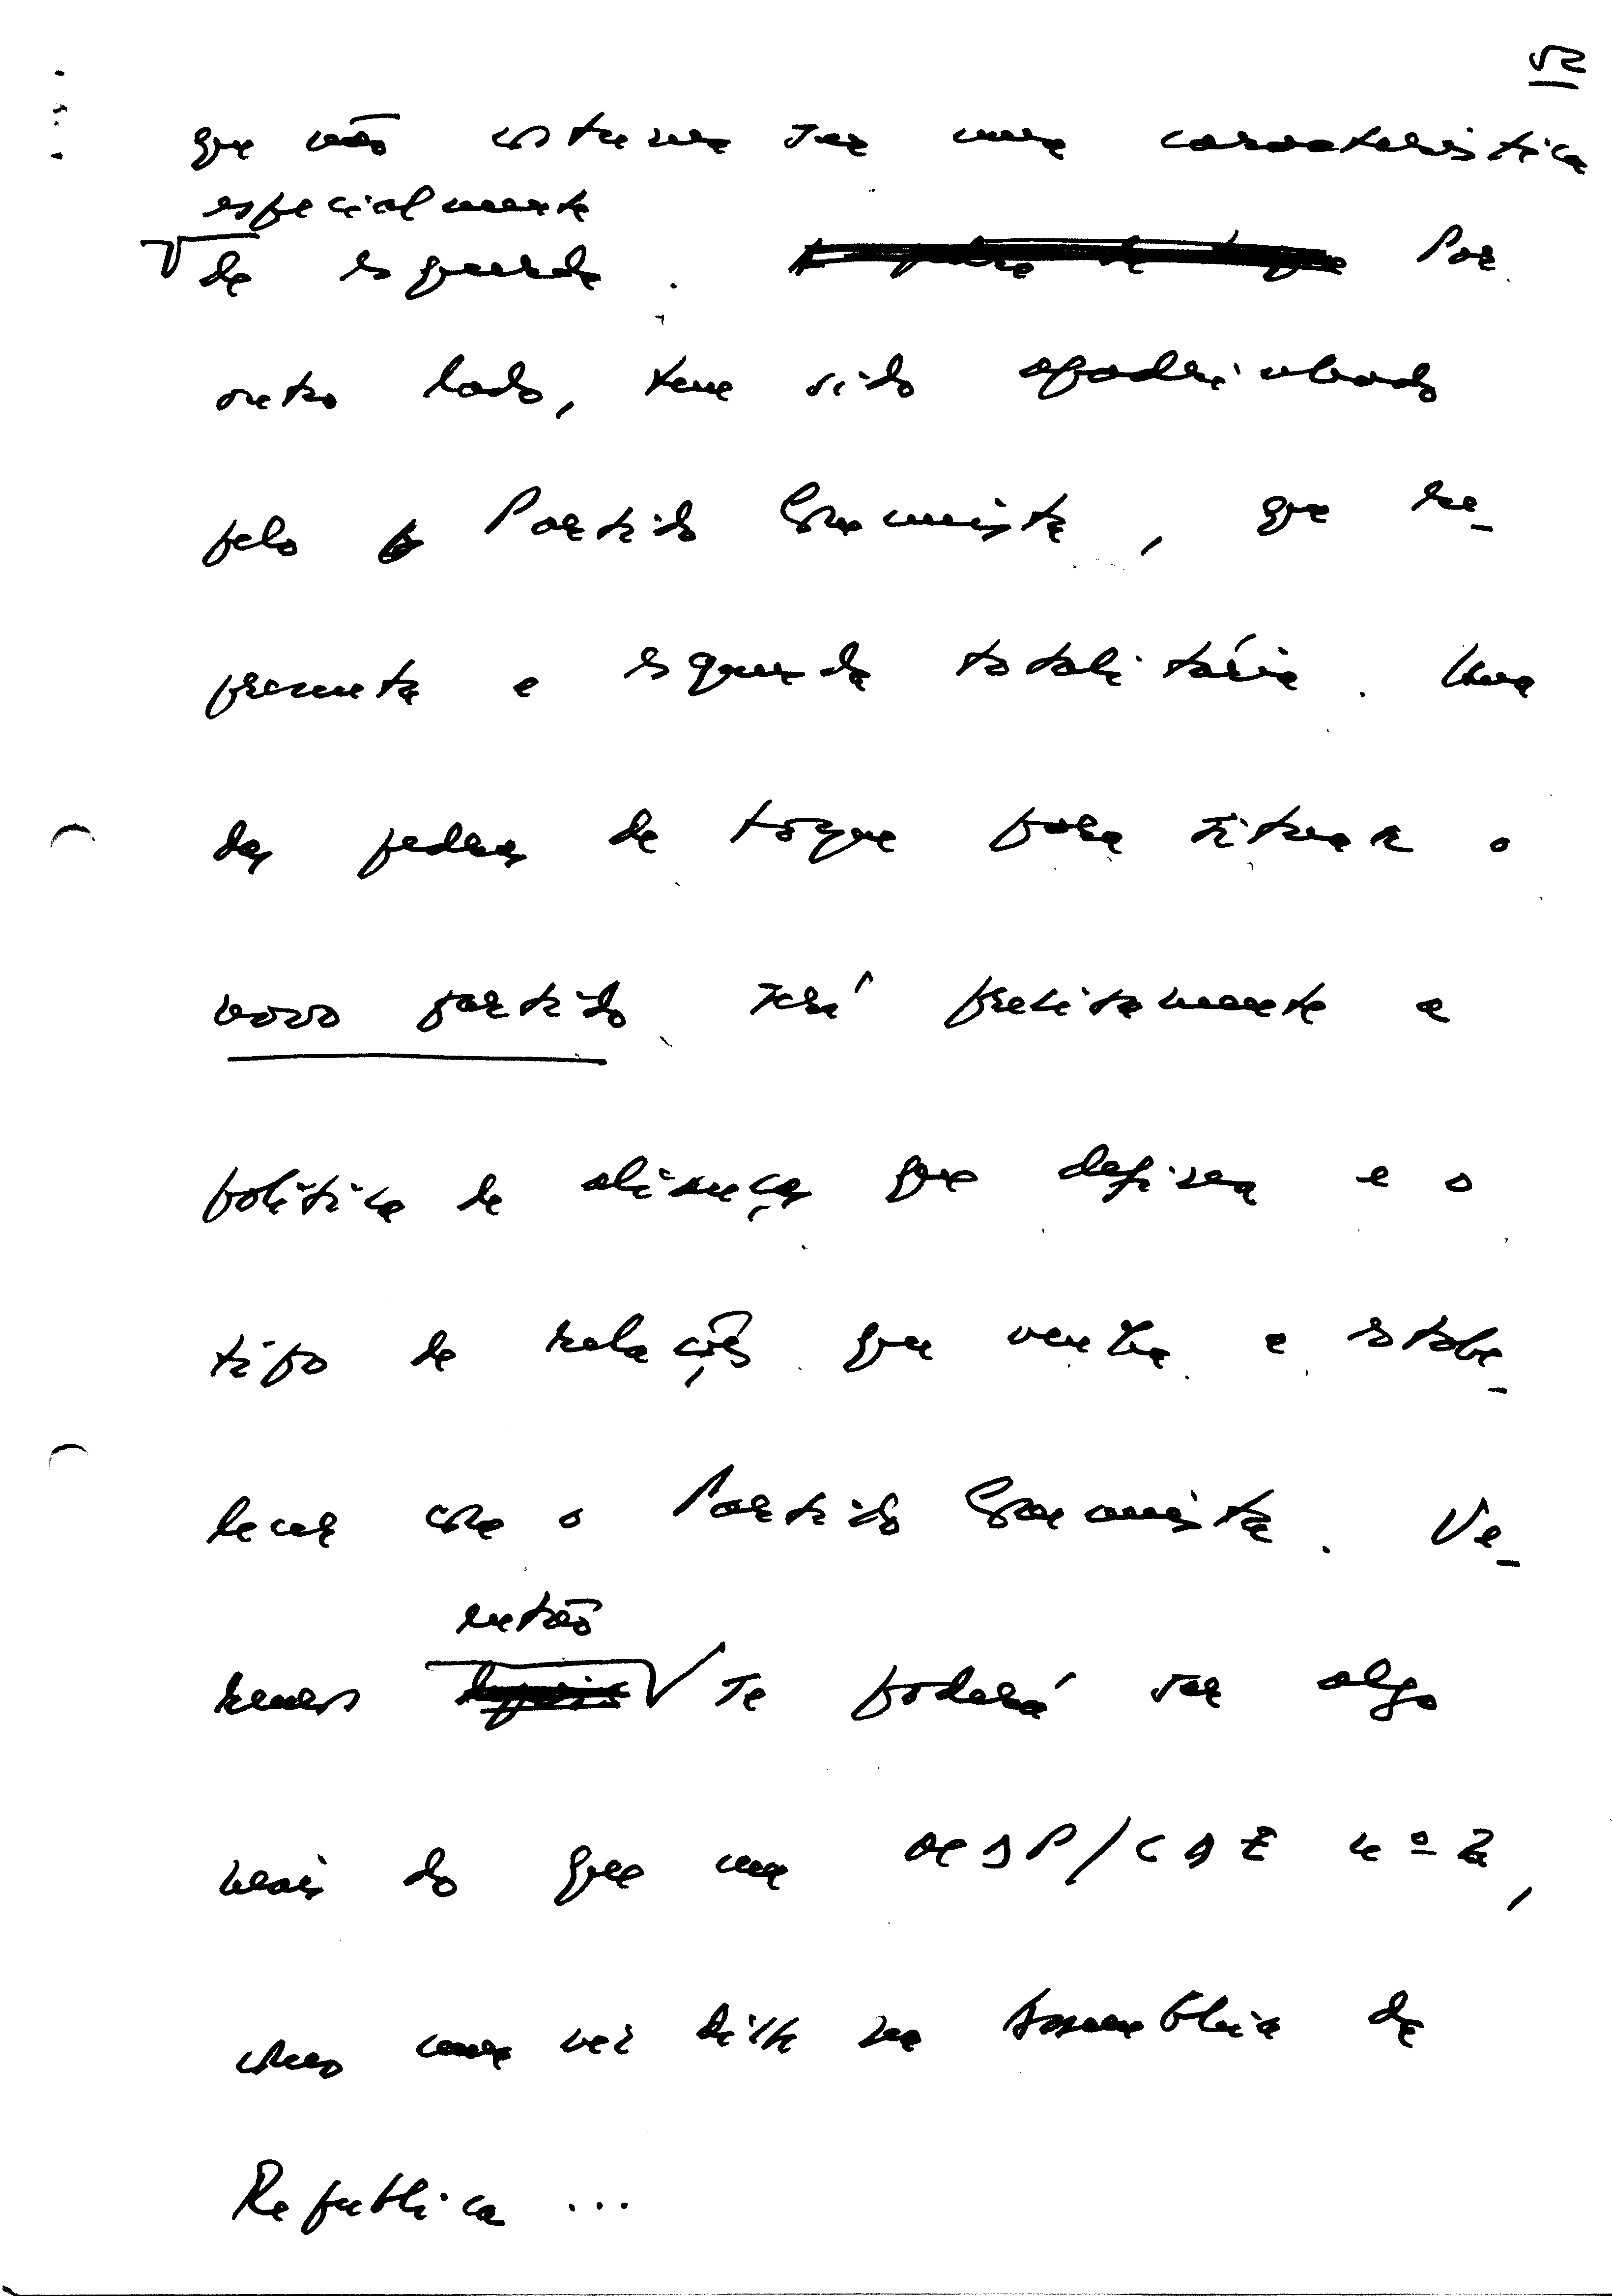 52
que não costuma ser uma característica
especialmente
de esquerda. Por
outro lado, tem sido apadrinhado
pelo Partido Comunista, que re-
presenta a esquerda totalitária. Uma
das pedras de toque para situar o
novo partido será precisamente a
política de alianças que defina e o
tipo de relações que venha a estabe-
lecer com o Partido Comunista. Ve-
então
remos se poderá ser algo
mais do que um MDP/CDE nº 2,
na Assembleia da
República ...